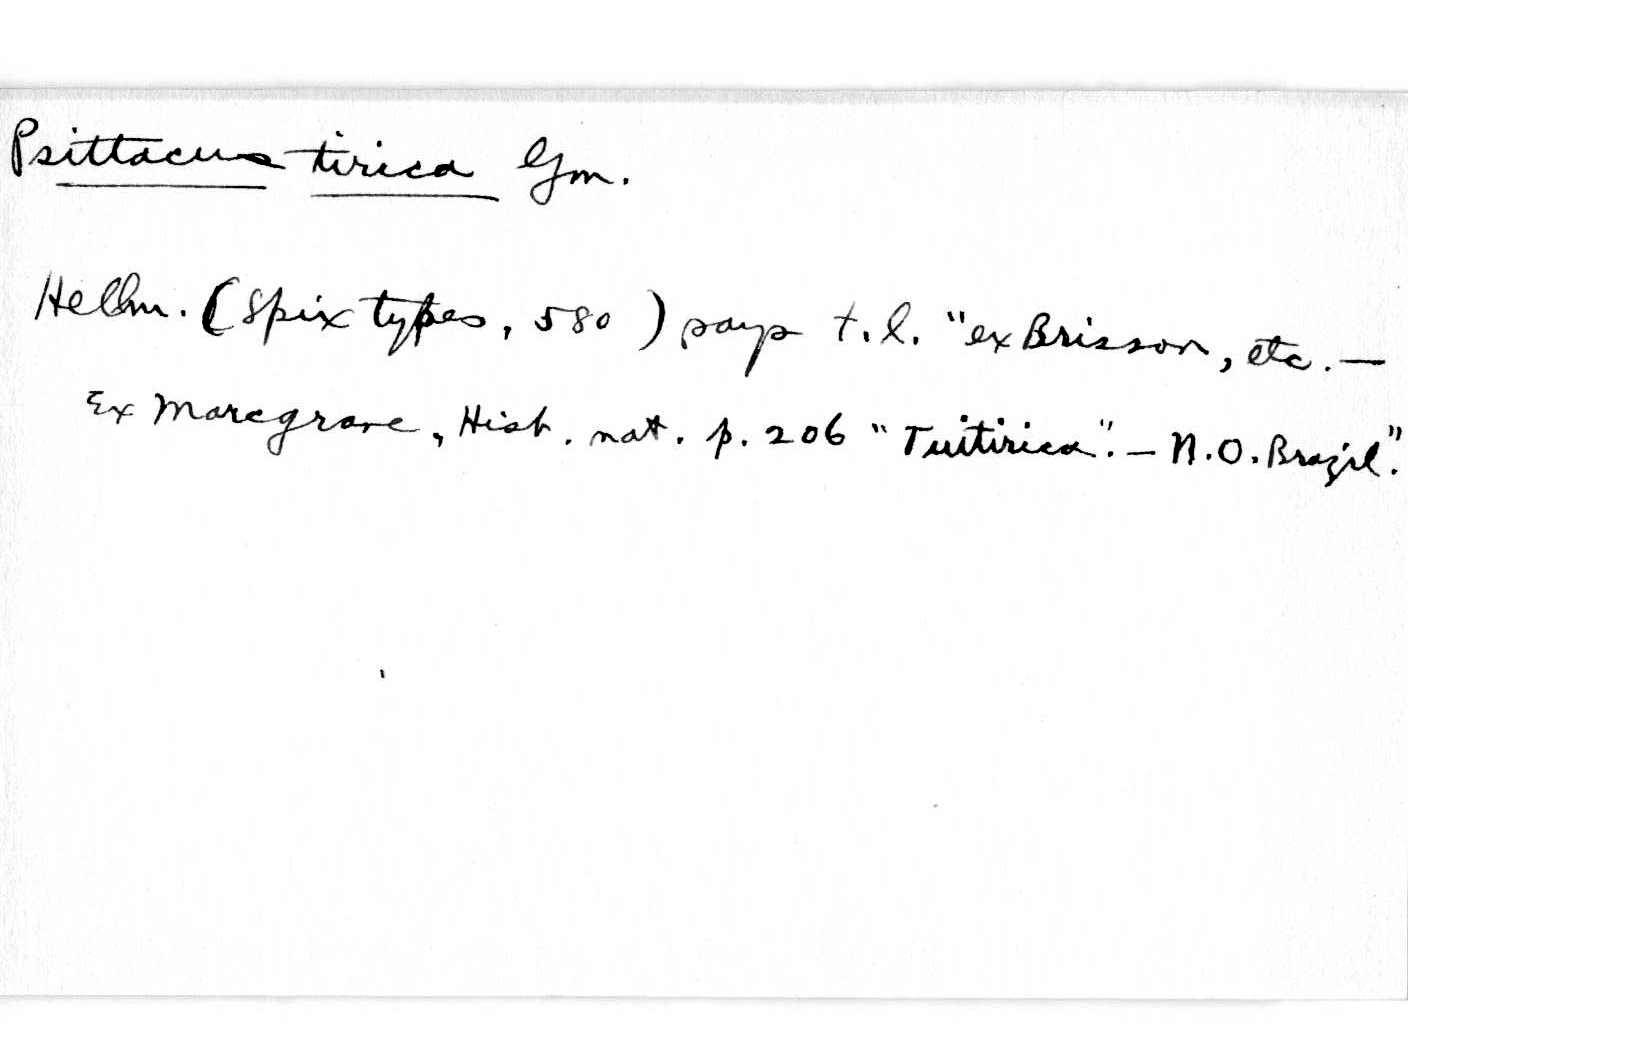 Psittacus tirica Gm.
Hellm. (Spix types, 580) says t.l. "ex Brisson, etc. —
Ex Marcgrave, Hist. nat. p. 206 "Tuitirica". — N.O. Brazil".